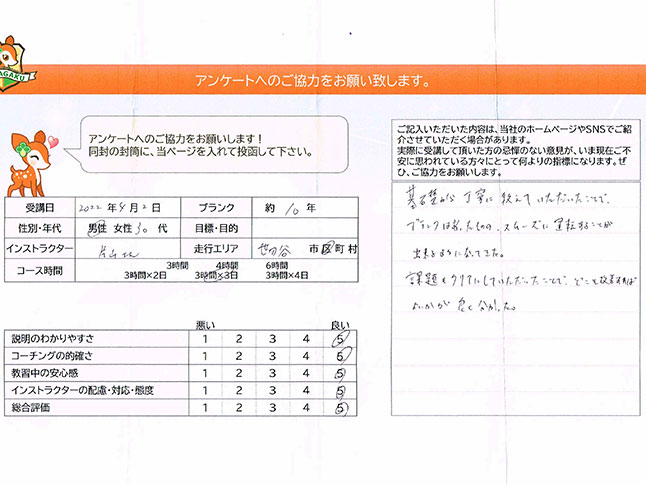 AGAKU
アンケートへのご協力をお願い致します。
アンケートへのご協力をお願いします！
同封の封筒に、当ページを入れて投函して下さい。
ご記入いただいた内容は、当社のホームページやSNSでご紹
介させていただく場合があります。
実際に受講して頂いた方の忌憚のない意見が、いま現在ご不
安に思われている方々にとって何よりの指標になります。ぜ
ひ、ご協力をお願いします。
受講日 2022年4月2日 ブランク 約 10 年
性別・年代 男性 女性 30 代 目標・目的
インストラクター 走行エリア 世田谷 市区町村
コース時間 3時間 4時間 6時間
3時間×2日 3時間×3日 3時間×4日
悪い 良い
説明のわかりやすさ 1 2 3 4 5
コーチングの的確さ 1 2 3 4 5
教習中の安心感 1 2 3 4 5
インストラクターの配慮・対応・態度 1 2 3 4 5
総合評価 1 2 3 4 5
基礎から丁寧に教えていただいたことで、
ブランクはあったものの、スムーズに運転することが
出来るようになってきた。
課題もクリアにしていただいたことで、どこを改善すれば
よいかが